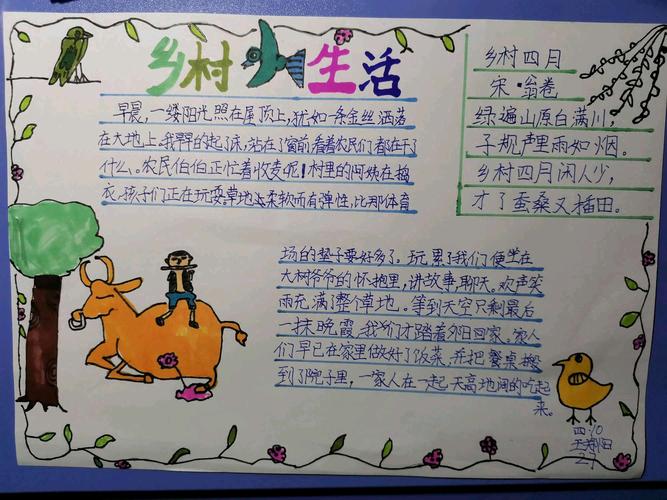 乡村生活
早晨，一缕阳光照在屋顶上，犹如一条金丝洒落
在大地上。我早早的起了床，站在了窗前看着农民们都在干了
什么。农民伯伯正忙着收麦呢！村里的阿姨在摘
衣，孩子们正在玩耍。草地头柔软而有弹性，比那体育
场的垫子要好多了。玩累了我们便坐在
大树爷爷的怀抱里，讲故事，聊天。欢声笑
雨充满了整个草地。等到天空只剩最后
一抹晚霞，我们才踏着夕阳回家。家人
们早已在家里做好了饭菜，并把餐桌搬
到了院子里，一家人在一起天高地阔的吃起
来。
乡村四月
宋·翁卷
绿遍山原白满川，
子规声里雨如烟。
乡村四月闲人少，
才了蚕桑又插田。
四.10